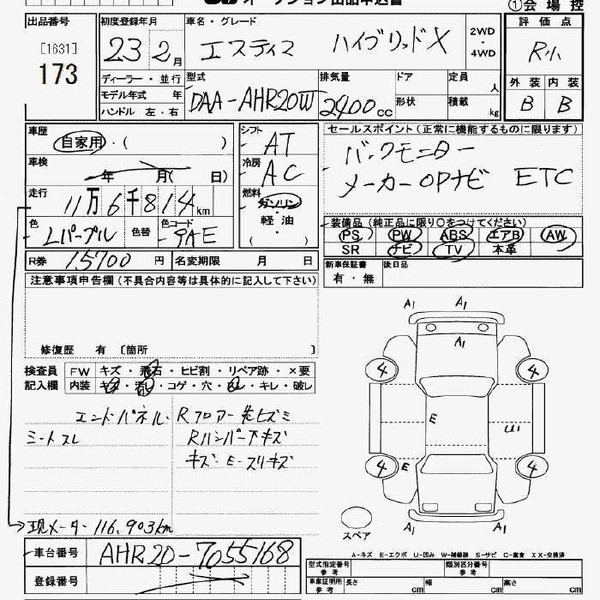 オークション出品申込書
①会場控
出品番号 [1631] 173
初度登録年月 23 2月
車名・グレード エスティマ ハイブリッドX
2WD・4WD
評価点 R小
外装 B 内装 B
ディーラー・並行
モデル年式 年
ハンドル 左・右
型式 DAA-AHR20W
排気量 2400cc
ドア 形状
定員 人
積載 kg
車歴 自家用・( )
車検 年 月( 日)
走行 11万6千814km
色 Lパープル 色替
シフト AT
冷房 AC
燃料 ガソリン
軽油・( )
セールスポイント(正常に機能するものに限ります)
バックモニター
メーカーOPナビ ETC
装備品(純正品に限り○をつけてください)
PS PW ABS エアB AW
SR ナビ TV 本革
R券 15700円 名変期限 月 日
新車保証書 有・無 後日品
注意事項申告欄(不具合内容等は具体的に記入して下さい)
修復歴 有 [箇所 ]
検査員記入欄
FW キズ・飛石・ヒビ割・リペア跡・×要
内装 キズ・汚レ・コゲ・穴・ムレ・キレ・破レ
エンドパネル・Rフロアー先ヒズミ
シートスレ Rバンパー下キズ
キズ・E-スリキズ
現メーター 116,903km
A1 A1
A1
4 4
E
4 E 4
A1 A1
スペア
A-キズ E-エクボ U-凹み W-補修跡 S-サビ C-腐食 XX-交換済
車台番号 AHR20-7055168
登録番号
型式指定番号 参考
類別区分番号 参考
車庫証明用 参考 長さ cm 幅 cm 高さ cm